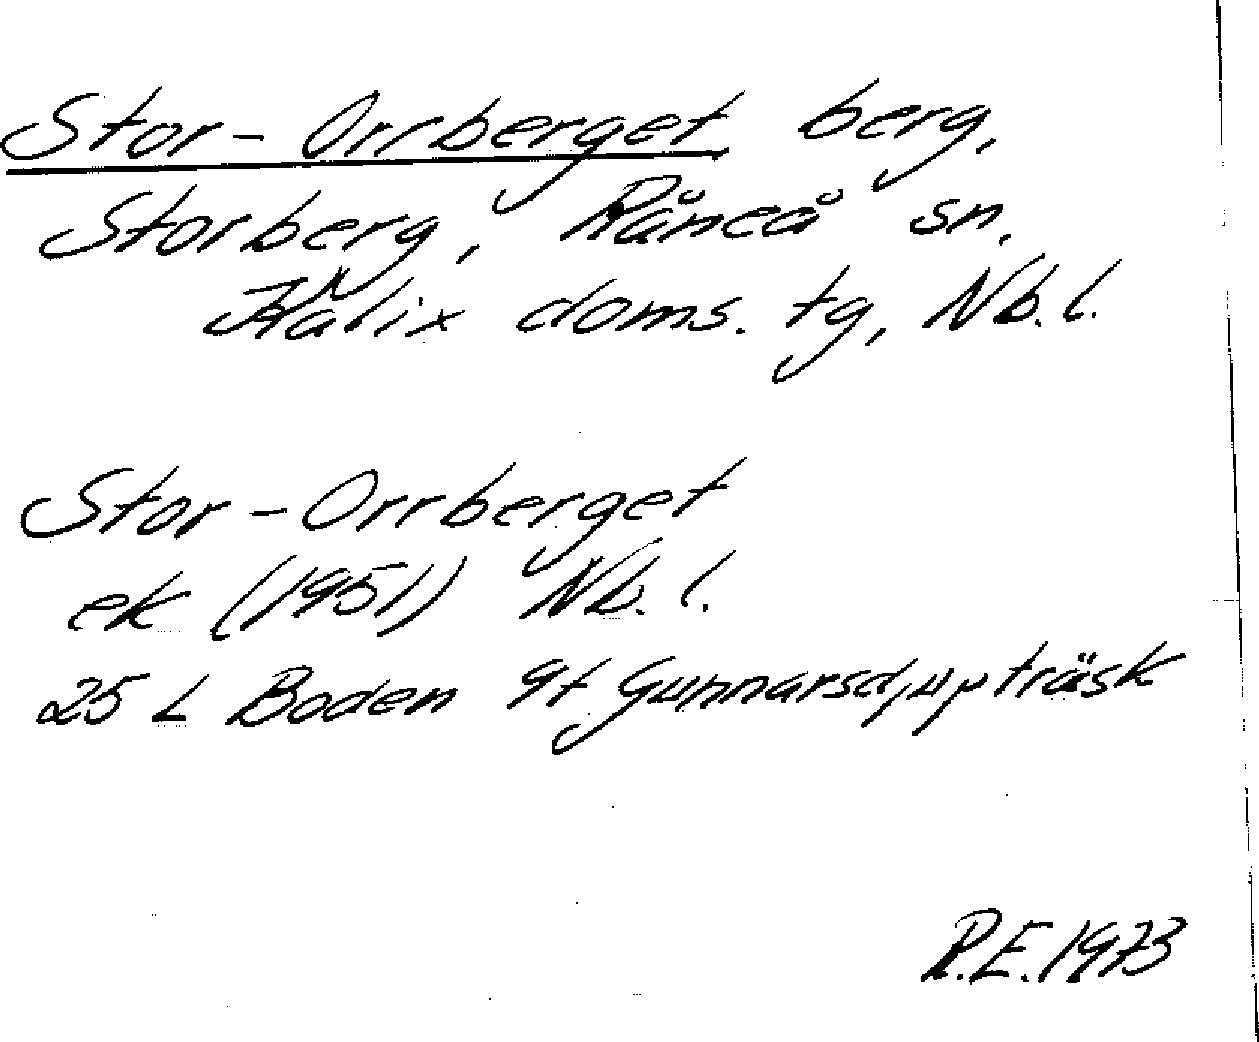 Stor-Orrberget berg,
Storberg, Råneå sn.
Kalix doms. tg, Nb.l.
Stor-Orrberget
ek (1951) Nb. l.
25 L Boden 9f Gunnarsdjupträsk
R.E. 1973